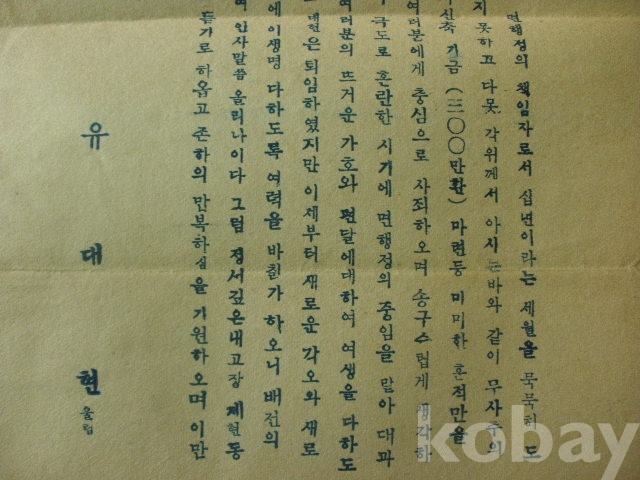 면행정의 책임자로서 십년이라는 세월을 묵묵히 도
지 못하고 다못 각위께서 아시는바와 같이 무사주의
신축 기금 (三〇〇만환) 마련등 미미한 흔적만을
여러분에게 충심으로 사죄하오며 송구스럽게 생각하
극도로 혼란한 시기에 면행정의 중임을 맡아 대과
여러분의 뜨거운 가호와 편달에대하여 여생을 다하도
대현은 퇴임하였지만 이제부터 새로운 각오와 새로
에 이생명 다하도록 여력을 바칠가 하오니 배전의
여 인사말씀 올리나이다 그럼 정서깊은내고장 제현동
듭기로 하옵고 존하의 만복하심을 기원하오며 이만
유대현 올림
kobay